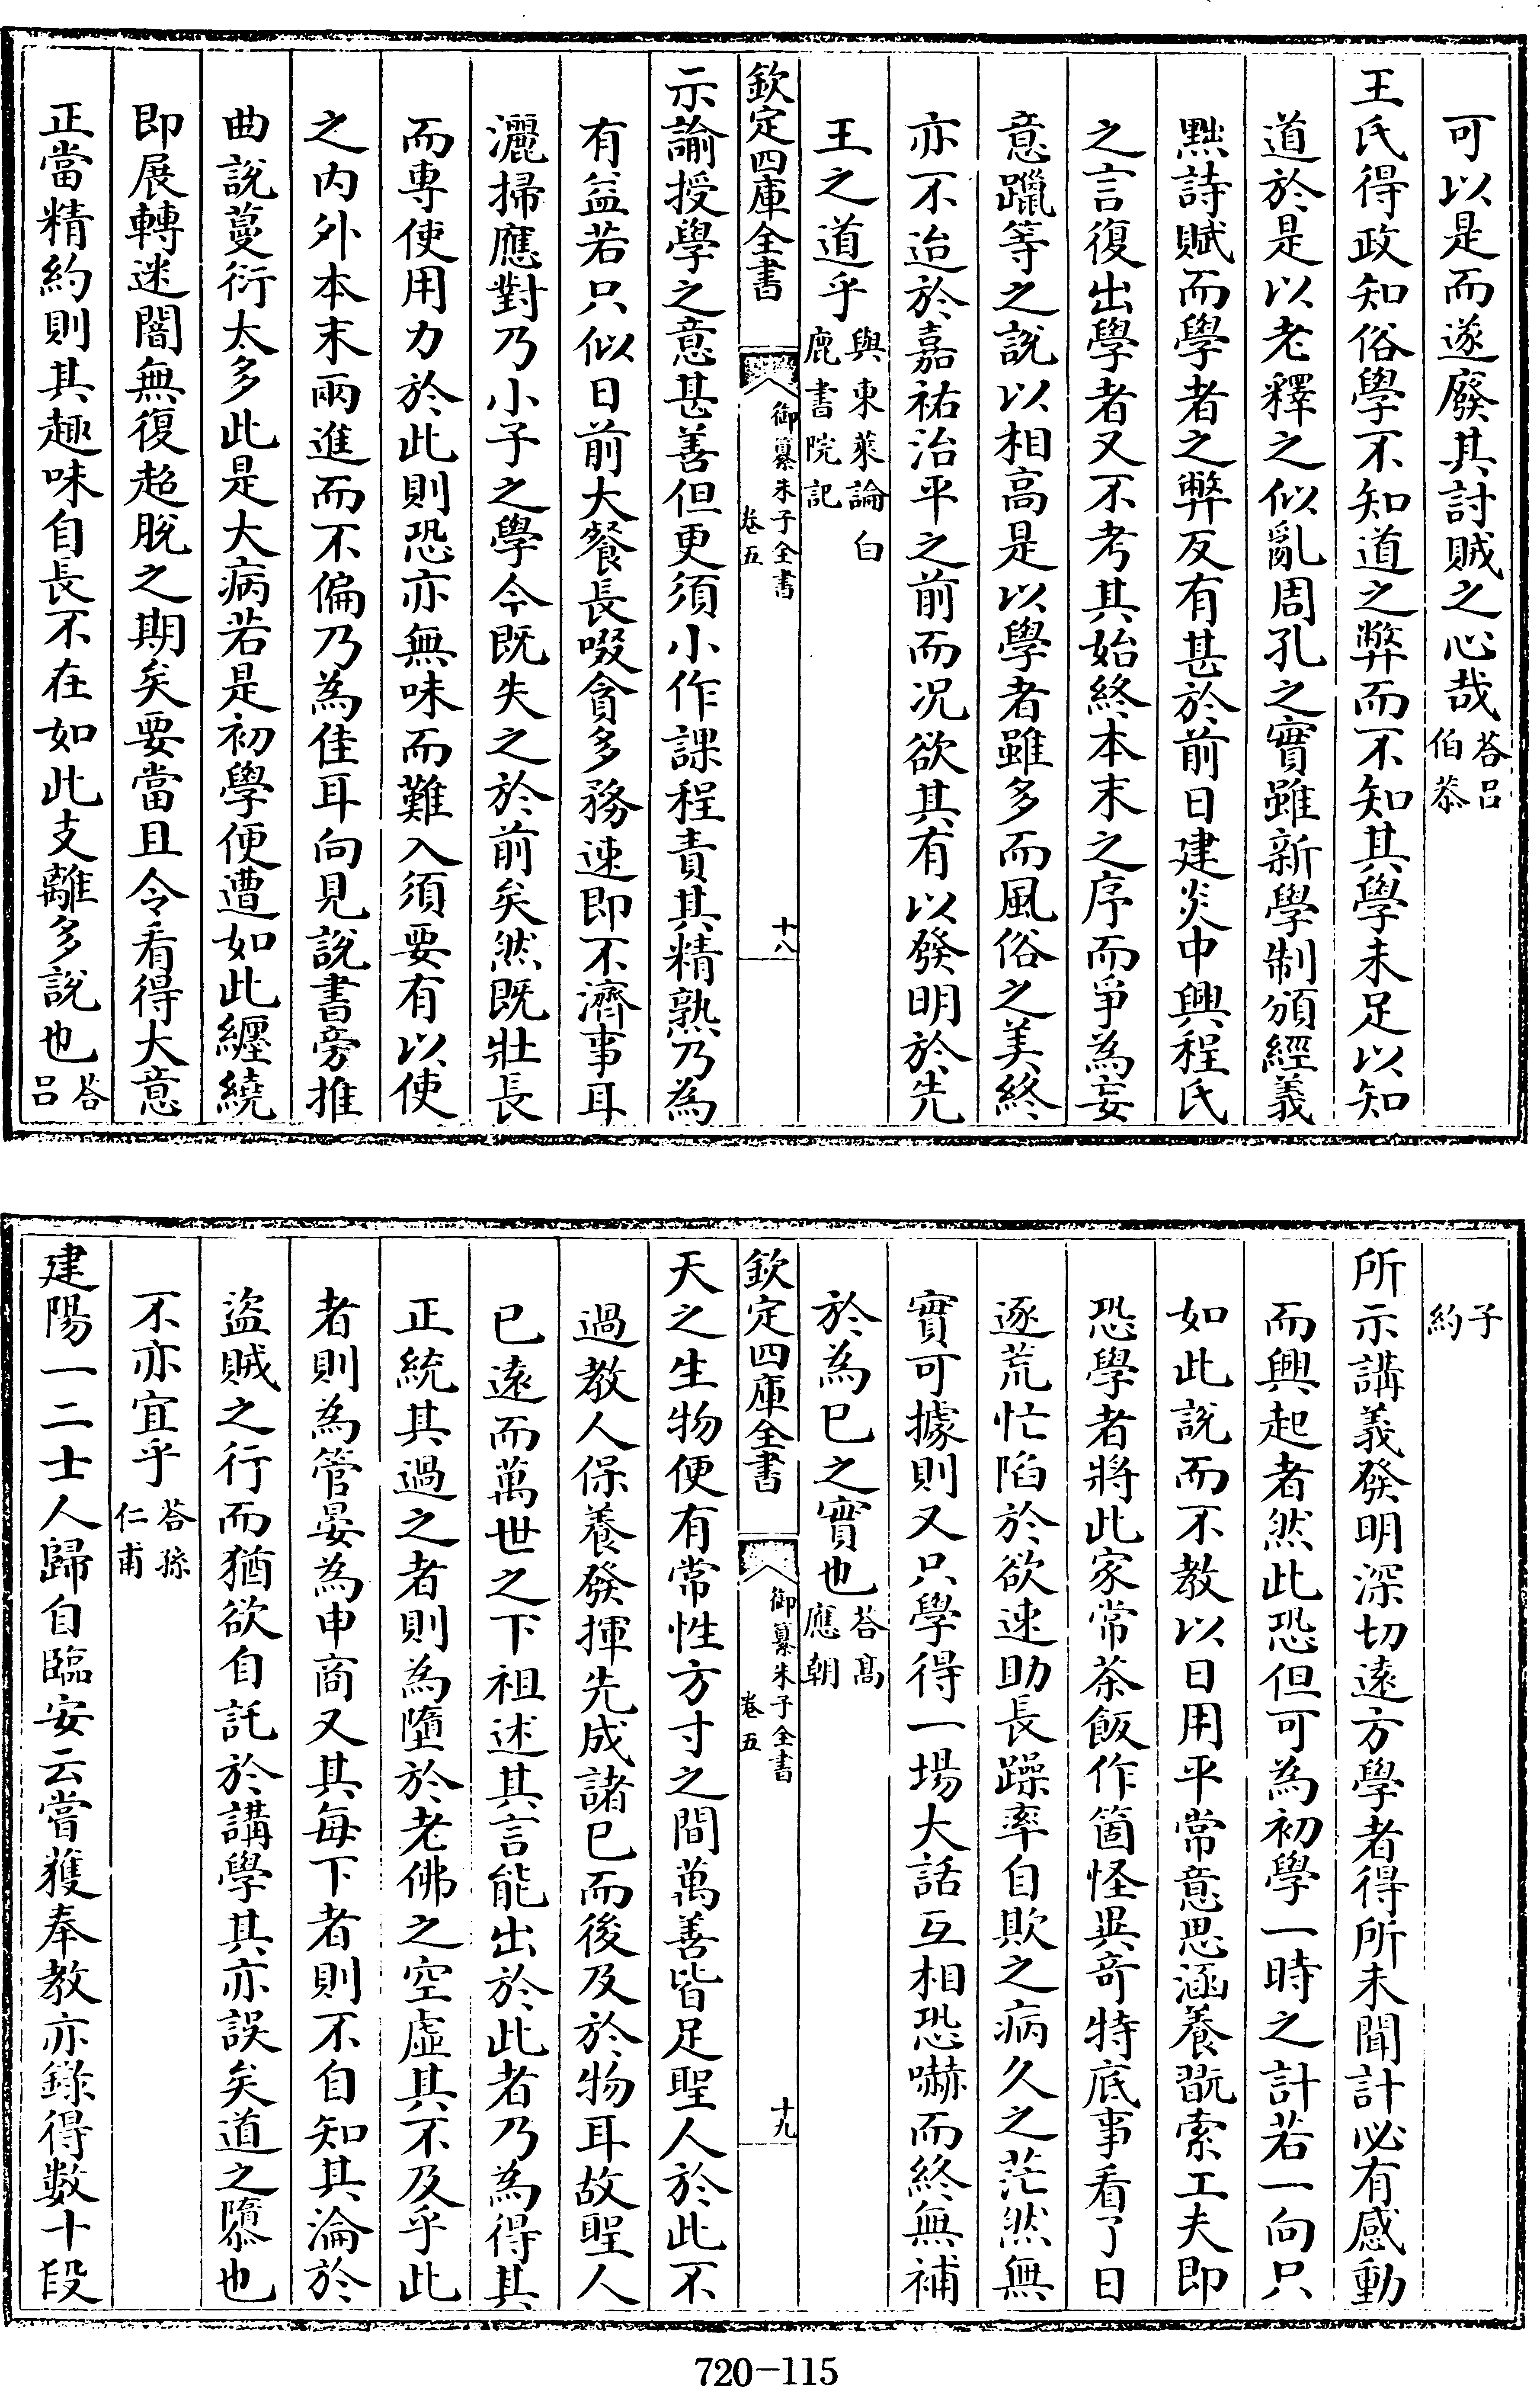 可以是而遂廢其討賊之心哉荅呂伯恭
王氏得政知俗學不知道之弊而不知其學未足以知
道於是以老釋之似亂周孔之實雖新學制頒經義
黜詩賦而學者之弊反有甚於前日建炎中興程氏
之言復出學者又不考其始終本末之序而爭為妄
意躐等之說以相高是以學者雖多而風俗之美終
亦不迨於嘉祐治平之前而況欲其有以發明於先
王之道乎與東萊論白鹿書院記
欽定四庫全書
御纂朱子全書
卷五
十八
示諭授學之意甚善但更須小作課程責其精熟乃為
有益若只似日前大餐長啜貪多務速即不濟事耳
灑掃應對乃小子之學今既失之於前矣然既壯長
而專使用力於此則恐亦無味而難入須要有以使
之內外本末兩進而不偏乃為佳耳向見說書旁推
曲說蔓衍太多此是大病若是初學便遭如此纏繞
即展轉迷闇無復超脫之期矣要當且令看得大意
正當精約則其趣味自長不在如此支離多說也荅呂
子約
所示講義發明深切遠方學者得所未聞計必有感動
而興起者然此恐但可為初學一時之計若一向只
如此說而不教以日用平常意思涵養翫索工夫即
恐學者將此家常茶飯作箇怪異奇特底事看了日
逐荒忙陷於欲速助長躁率自欺之病久之茫然無
實可據則又只學得一場大話互相恐嚇而終無補
於為已之實也荅高應朝
欽定四庫全書
御纂朱子全書
卷五
十九
天之生物便有常性方寸之間萬善皆足聖人於此不
過教人保養發揮先成諸已而後及於物耳故聖人
已遠而萬世之下祖述其言能出於此者乃為得其
正統其過之者則為墮於老佛之空虛其不及乎此
者則為管晏為申商又其每下者則不自知其淪於
盜賊之行而猶欲自託於講學其亦誤矣道之隳也
不亦宜乎荅孫仁甫
建陽一二士人歸自臨安云嘗獲奉教亦錄得數十段
720-115